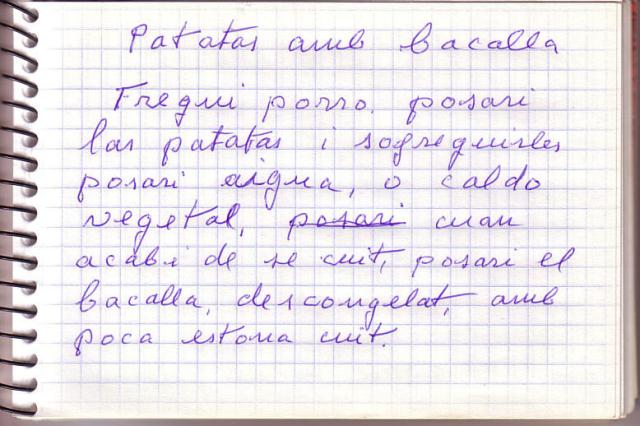 Patatas amb bacalla
Fregui porro, posari
las patatas i sogreguirles
posari aigua, o caldo
vegetal, posari cuan
acabi de se cuit, posari el
bacalla, descongelat, amb
poca estona cuit.